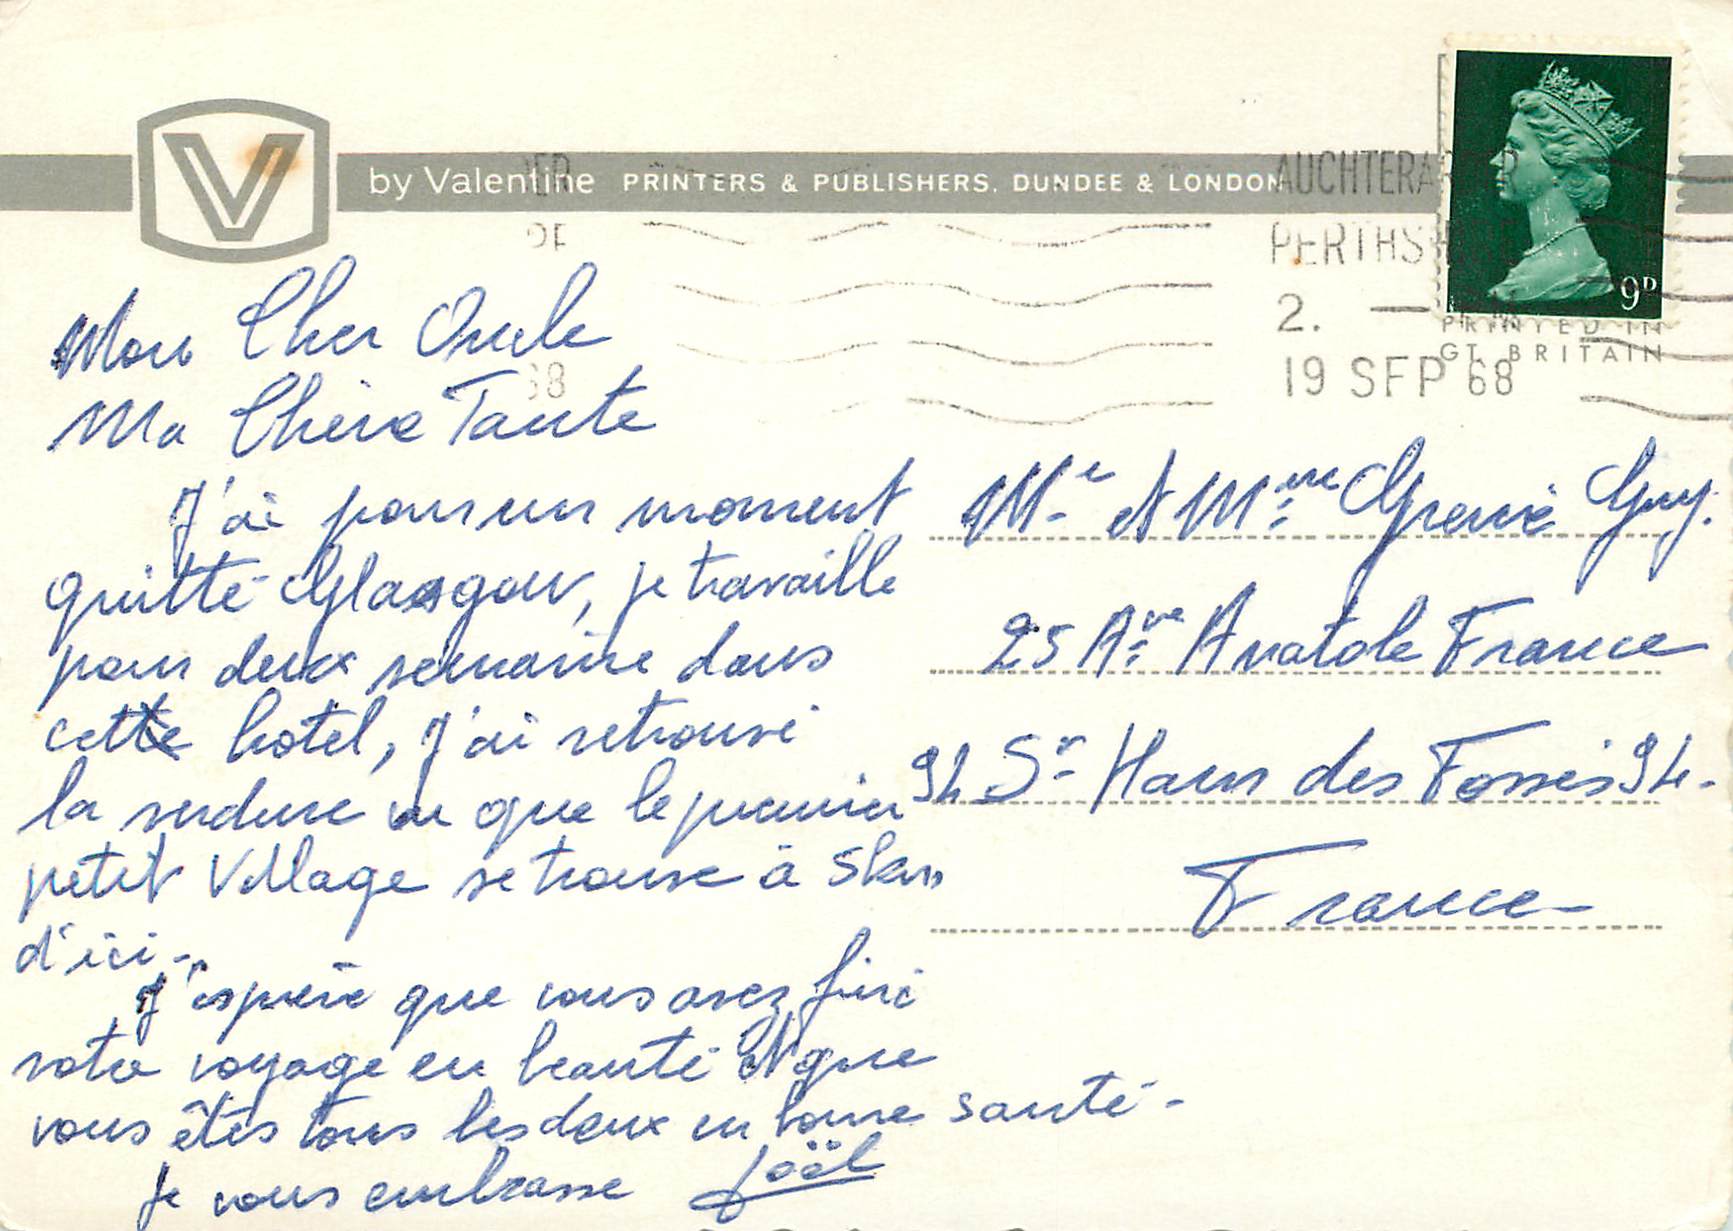 V
by Valentine PRINTERS & PUBLISHERS. DUNDEE & LONDON
AUCHTERARDER
PERTHSHIRE
2.
19 SEP 68
9D
PRINTED IN
GT. BRITAIN
Mon Cher Oncle
Ma Chère Tante
J'ai pour un moment
quitté Glasgow, je travaille
pour deux semaine dans
cette hotel, j'ai retrouvé
la verdure vu que le premier
petit village se trouve à 5km
d'ici -
J'espère que vous avez fini
votre voyage en beauté et que
vous êtes tous les deux en bonne santé -
Je vous embrasse Joël
Mr et Mme Guy.
25 Ave Anatole France
94 St Maur des Fossés 94 -
France -